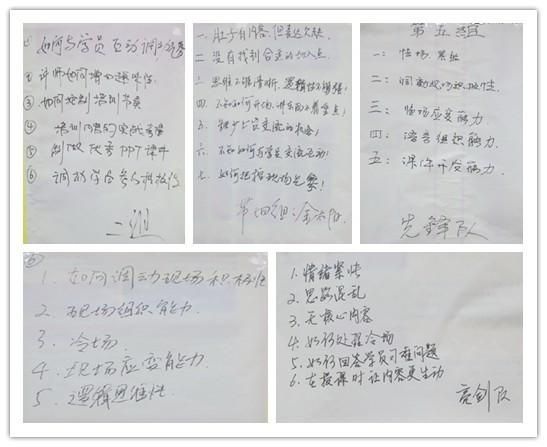 如何与学员互动调
讲师如何增
③如何控制培训节奏
④培训内容的实战
⑤制做优秀PPT课件
⑥调动学员参
二组
一、肚子有内容,但表达欠缺
二、没有找到合适的切入点
三、思维不够清晰,逻辑性不够强!
四、不知如何开始,讲与的着重点!
五、缺少上台交流的机会!
六、不知如何与学员交流互动!
七、如何把握现场气氛!
第四组:金太阳
第五组
一:怯场 紧张
二:调动现场积极性.
三:临场应变能力
四:语言组织能力.
五:课件开发能力.
先鋒队
⑥
1.如何调动现场积极性
2.现场组织能力.
3.冷场.
4.现场应变能力.
5.逻辑思维性.
1.情绪紧张
2.思路混乱
3.无核心内容
4.如何处理冷场
5.如何回答学员刁难问题
6.在授课时让内容更生动
亮剑队